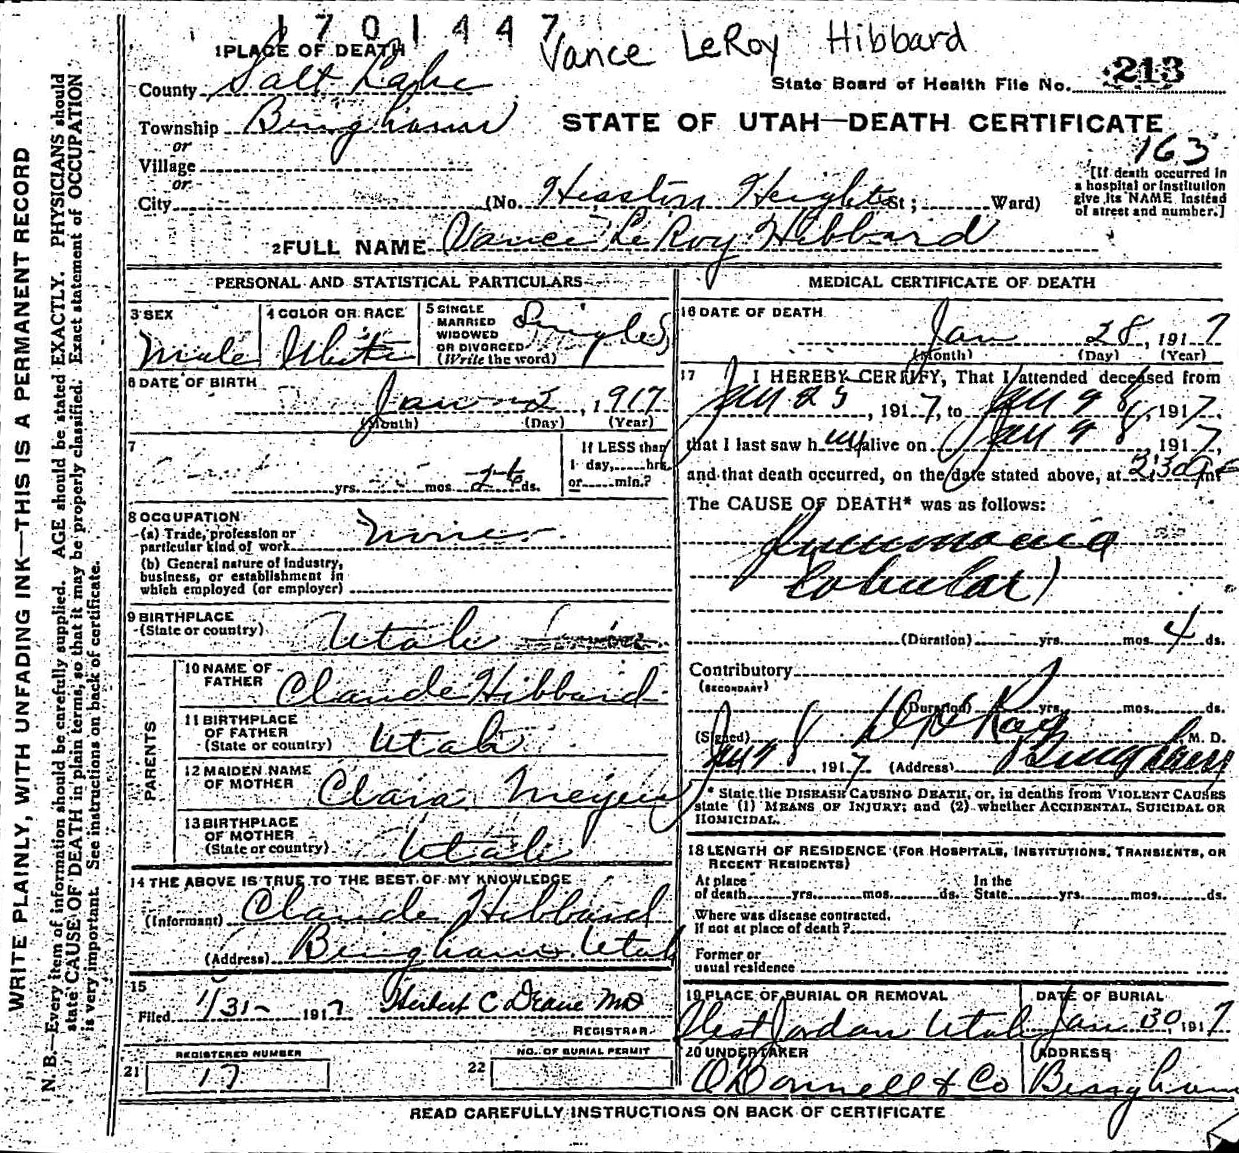 1701447
Vance LeRoy Hibbard
1 PLACE OF DEATH
County Salt Lake
State Board of Health File No. 213
Township Bingham
STATE OF UTAH—DEATH CERTIFICATE
163
or
Village
or
City (No. Heights St; Ward)
[If death occurred in a hospital or institution give its NAME instead of street and number.]
2 FULL NAME Vance LeRoy Hibbard
PERSONAL AND STATISTICAL PARTICULARS
3 SEX Male
4 COLOR OR RACE White
5 SINGLE MARRIED WIDOWED OR DIVORCED (Write the word) Single
6 DATE OF BIRTH
Jan 2, 1917
(Month) (Day) (Year)
7
yrs. mos. 26 ds.
If LESS than 1 day, hrs. or min.?
8 OCCUPATION
(a) Trade, profession or particular kind of work None
(b) General nature of industry, business, or establishment in which employed (or employer)
9 BIRTHPLACE (State or country) Utah
PARENTS
10 NAME OF FATHER Claude Hibbard
11 BIRTHPLACE OF FATHER (State or country) Utah
12 MAIDEN NAME OF MOTHER Clara
13 BIRTHPLACE OF MOTHER (State or country) Utah
14 THE ABOVE IS TRUE TO THE BEST OF MY KNOWLEDGE
(Informant) Claude Hibbard
(Address) Bingham Utah
15
Filed 1/31- 1917 Herbert C Deane MD
REGISTRAR
REGISTERED NUMBER
21 17
NO. OF BURIAL PERMIT
22
MEDICAL CERTIFICATE OF DEATH
16 DATE OF DEATH
Jan 28, 1917
(Month) (Day) (Year)
17 I HEREBY CERTIFY, That I attended deceased from
Jan 25, 1917, to Jan 28, 1917,
that I last saw h im alive on Jan 28, 1917,
and that death occurred, on the date stated above, at 2:30 m
The CAUSE OF DEATH* was as follows:
Pneumonia
Lobular)
(Duration) yrs. mos. 4 ds.
Contributory
(SECONDARY)
(Duration) yrs. mos. ds.
(Signed) Ray M. D.
Jan 28, 1917 (Address) Bingham
* State the DISEASE CAUSING DEATH, or, in deaths from VIOLENT CAUSES
state (1) MEANS OF INJURY; and (2) whether ACCIDENTAL, SUICIDAL OR
HOMICIDAL.
18 LENGTH OF RESIDENCE (FOR HOSPITALS, INSTITUTIONS, TRANSIENTS, OR
RECENT RESIDENTS)
At place of death yrs. mos. ds. In the State yrs. mos. ds.
Where was disease contracted,
if not at place of death?
Former or
usual residence
19 PLACE OF BURIAL OR REMOVAL
West Jordan Utah
DATE OF BURIAL
Jan 30, 1917
20 UNDERTAKER
O'Donnell & Co
ADDRESS
Bingham
READ CAREFULLY INSTRUCTIONS ON BACK OF CERTIFICATE
WRITE PLAINLY, WITH UNFADING INK—THIS IS A PERMANENT RECORD
N. B.—Every item of information should be carefully supplied. AGE should be stated EXACTLY. PHYSICIANS should
state CAUSE OF DEATH in plain terms, so that it may be properly classified. Exact statement of OCCUPATION
is very important. See instructions on back of certificate.